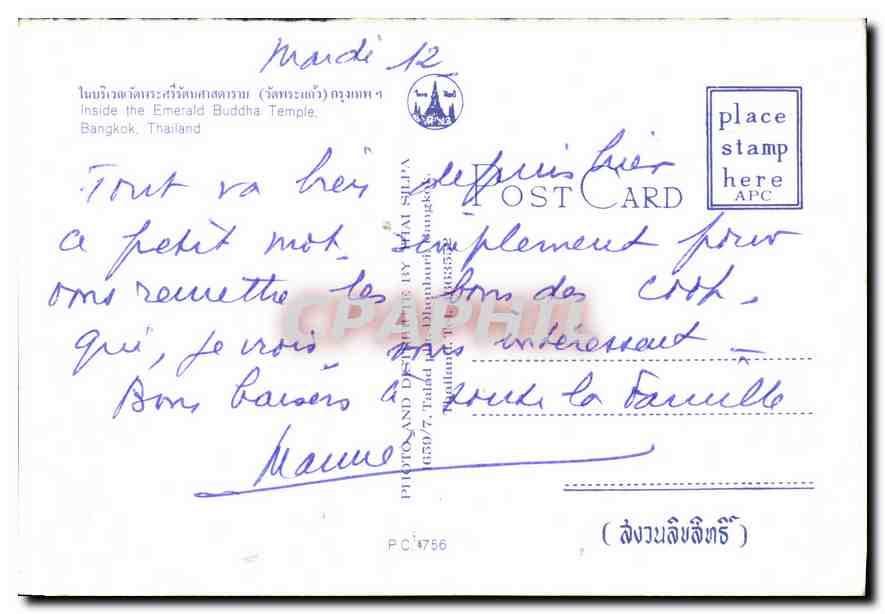 Mardi 12
ในบริเวณวัดพระศรีรัตนศาสดาราม (วัดพระแก้ว) กรุงเทพ ฯ
Inside the Emerald Buddha Temple,
Bangkok, Thailand
place
stamp
here
APC
POST CARD
Tout va bien depuis hier
Ce petit mot simplement pour
vous remettre les bons des coop.
qui, je crois vous intéressent
Bons baisers à toute la Famille
PHOTO AND DISTRIBUTE BY THAI SILPA
659/7, Talad Dhonburi, Bangkok,
Thailand.
CPAPHIL
P.C. 4756
(สงวนลิขสิทธิ์)